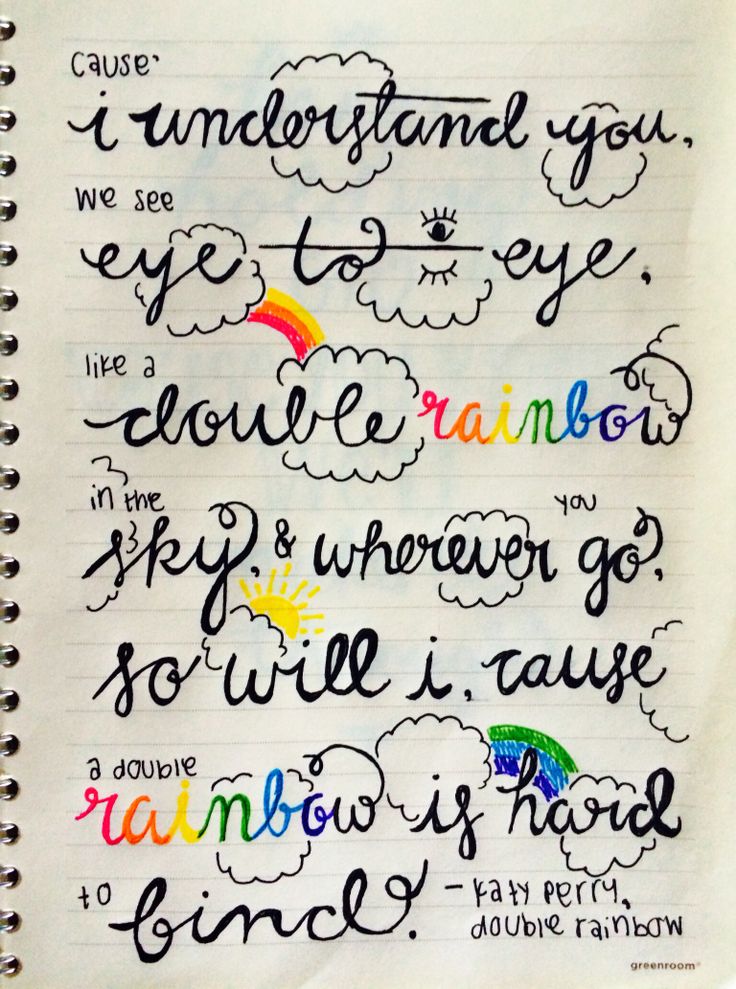 cause'
i understand you,
we see
eye to eye,
like a
double rainbow
in the
sky, & wherever you go,
so will i, cause
a double
rainbow is hard
to bind. - katy perry,
double rainbow
greenroom